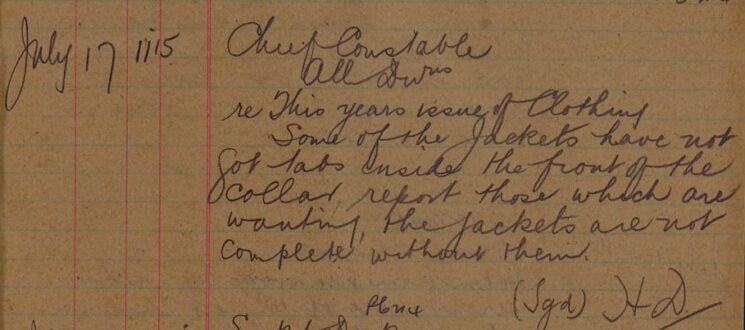 July 17 1115 Chief Constable
All Divns
re This years issue of Clothing
Some of the Jackets have not
got tabs inside the front of the
collar, report those which are
wanting, the Jackets are not
complete without them.
(Sgd) H.D.
Phone